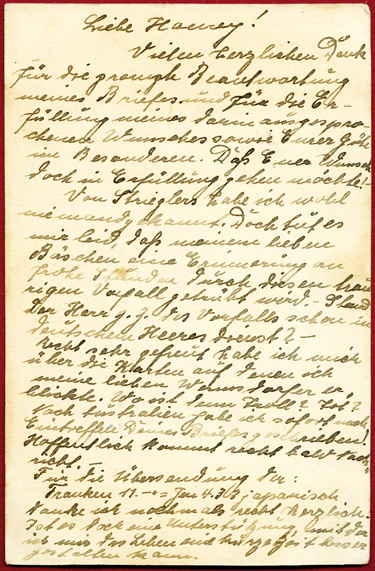 Liebe Haney!
Vielen herzlichen Dank
für die prompte Beantwortung
meines Briefes und für die Er-
füllung meines darin ausgespro-
chenen Wunsches sowie Eurer Güte
im Besonderen. Daß Euer Wunsch
doch in Erfüllung gehen möchte!
Von Strieglers habe ich wohl
niemand gekannt. Doch tut es
mir leid, daß meinem lieben
Bäschen eine Erinnerung an
frohe Stunden durch diesen trau-
rigen Vorfall getrübt wird. - Stand
der Herr z. Z. des Vorfalls schon in
deutschen Heeresdienst? -
Recht sehr gefreut habe ich mich
über die Karten auf denen ich
meine lieben er
blickte. Wo ist denn Tot?
Nach Australien habe ich sofort nach
Eintreffen Deines Briefes geschrieben!
Hoffentlich kommt recht bald Nach-
richt. -
Für die Übersendung der:
Franken 11.- = Jen 4.33 japanisch
danke ich nochmals recht herzlich.
Ist es doch eine Unterstützung, mit der
ich mir das Leben eine kurze Zeit besser
gestalten kann.